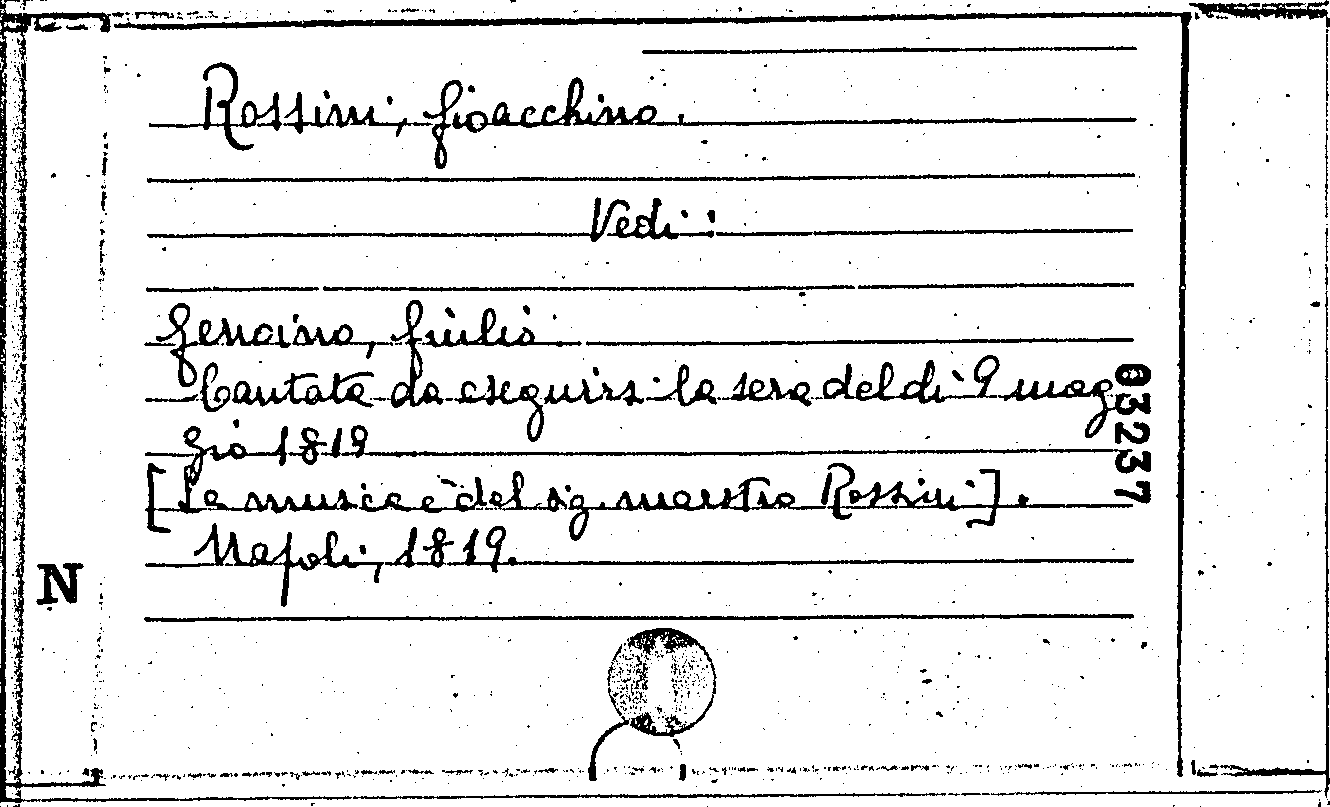 Rossini, Gioacchino.
Vedi:
Genoino, Giulio.
Cantata da eseguirsi la sera del dì 9 mag
gio 1819
[La musica è del sig. maestro Rossini].
Napoli, 1819.
03237
N